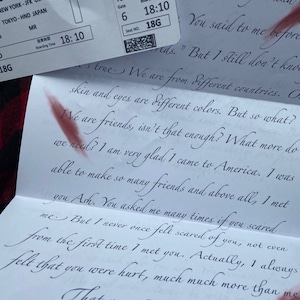 NEW YORK - JFK
TOKYO - HND JAPAN
MR
Gate
6
18:10
Seat
18G
Boarding Time
18:10
18G
You said to me before
." But I still don't know
true. We are from different countries. O
skin and eyes are different colors. But so what?
We are friends, isn't that enough? What more do
we need? I am very glad I came to America. I was
able to make so many friends and above all, I met
you Ash. You asked me many times if you scared
me. But I never once felt scared of you, not even
from the first time I met you. Actually, I always
felt that you were hurt, much much more than me